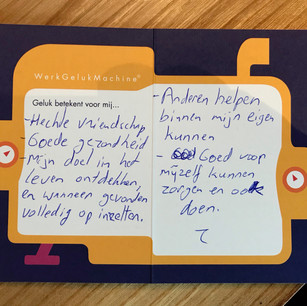 WerkGelukMachine®
Geluk betekent voor mij...
- Hechte vriendschap
- Goede gezondheid
- Mijn doel in het
leven ontdekken,
en wanneer gevonden
volledig op inzetten.
- Anderen helpen
binnen mijn eigen
kunnen
- Goed voor
mijzelf kunnen
zorgen en ook
doen.